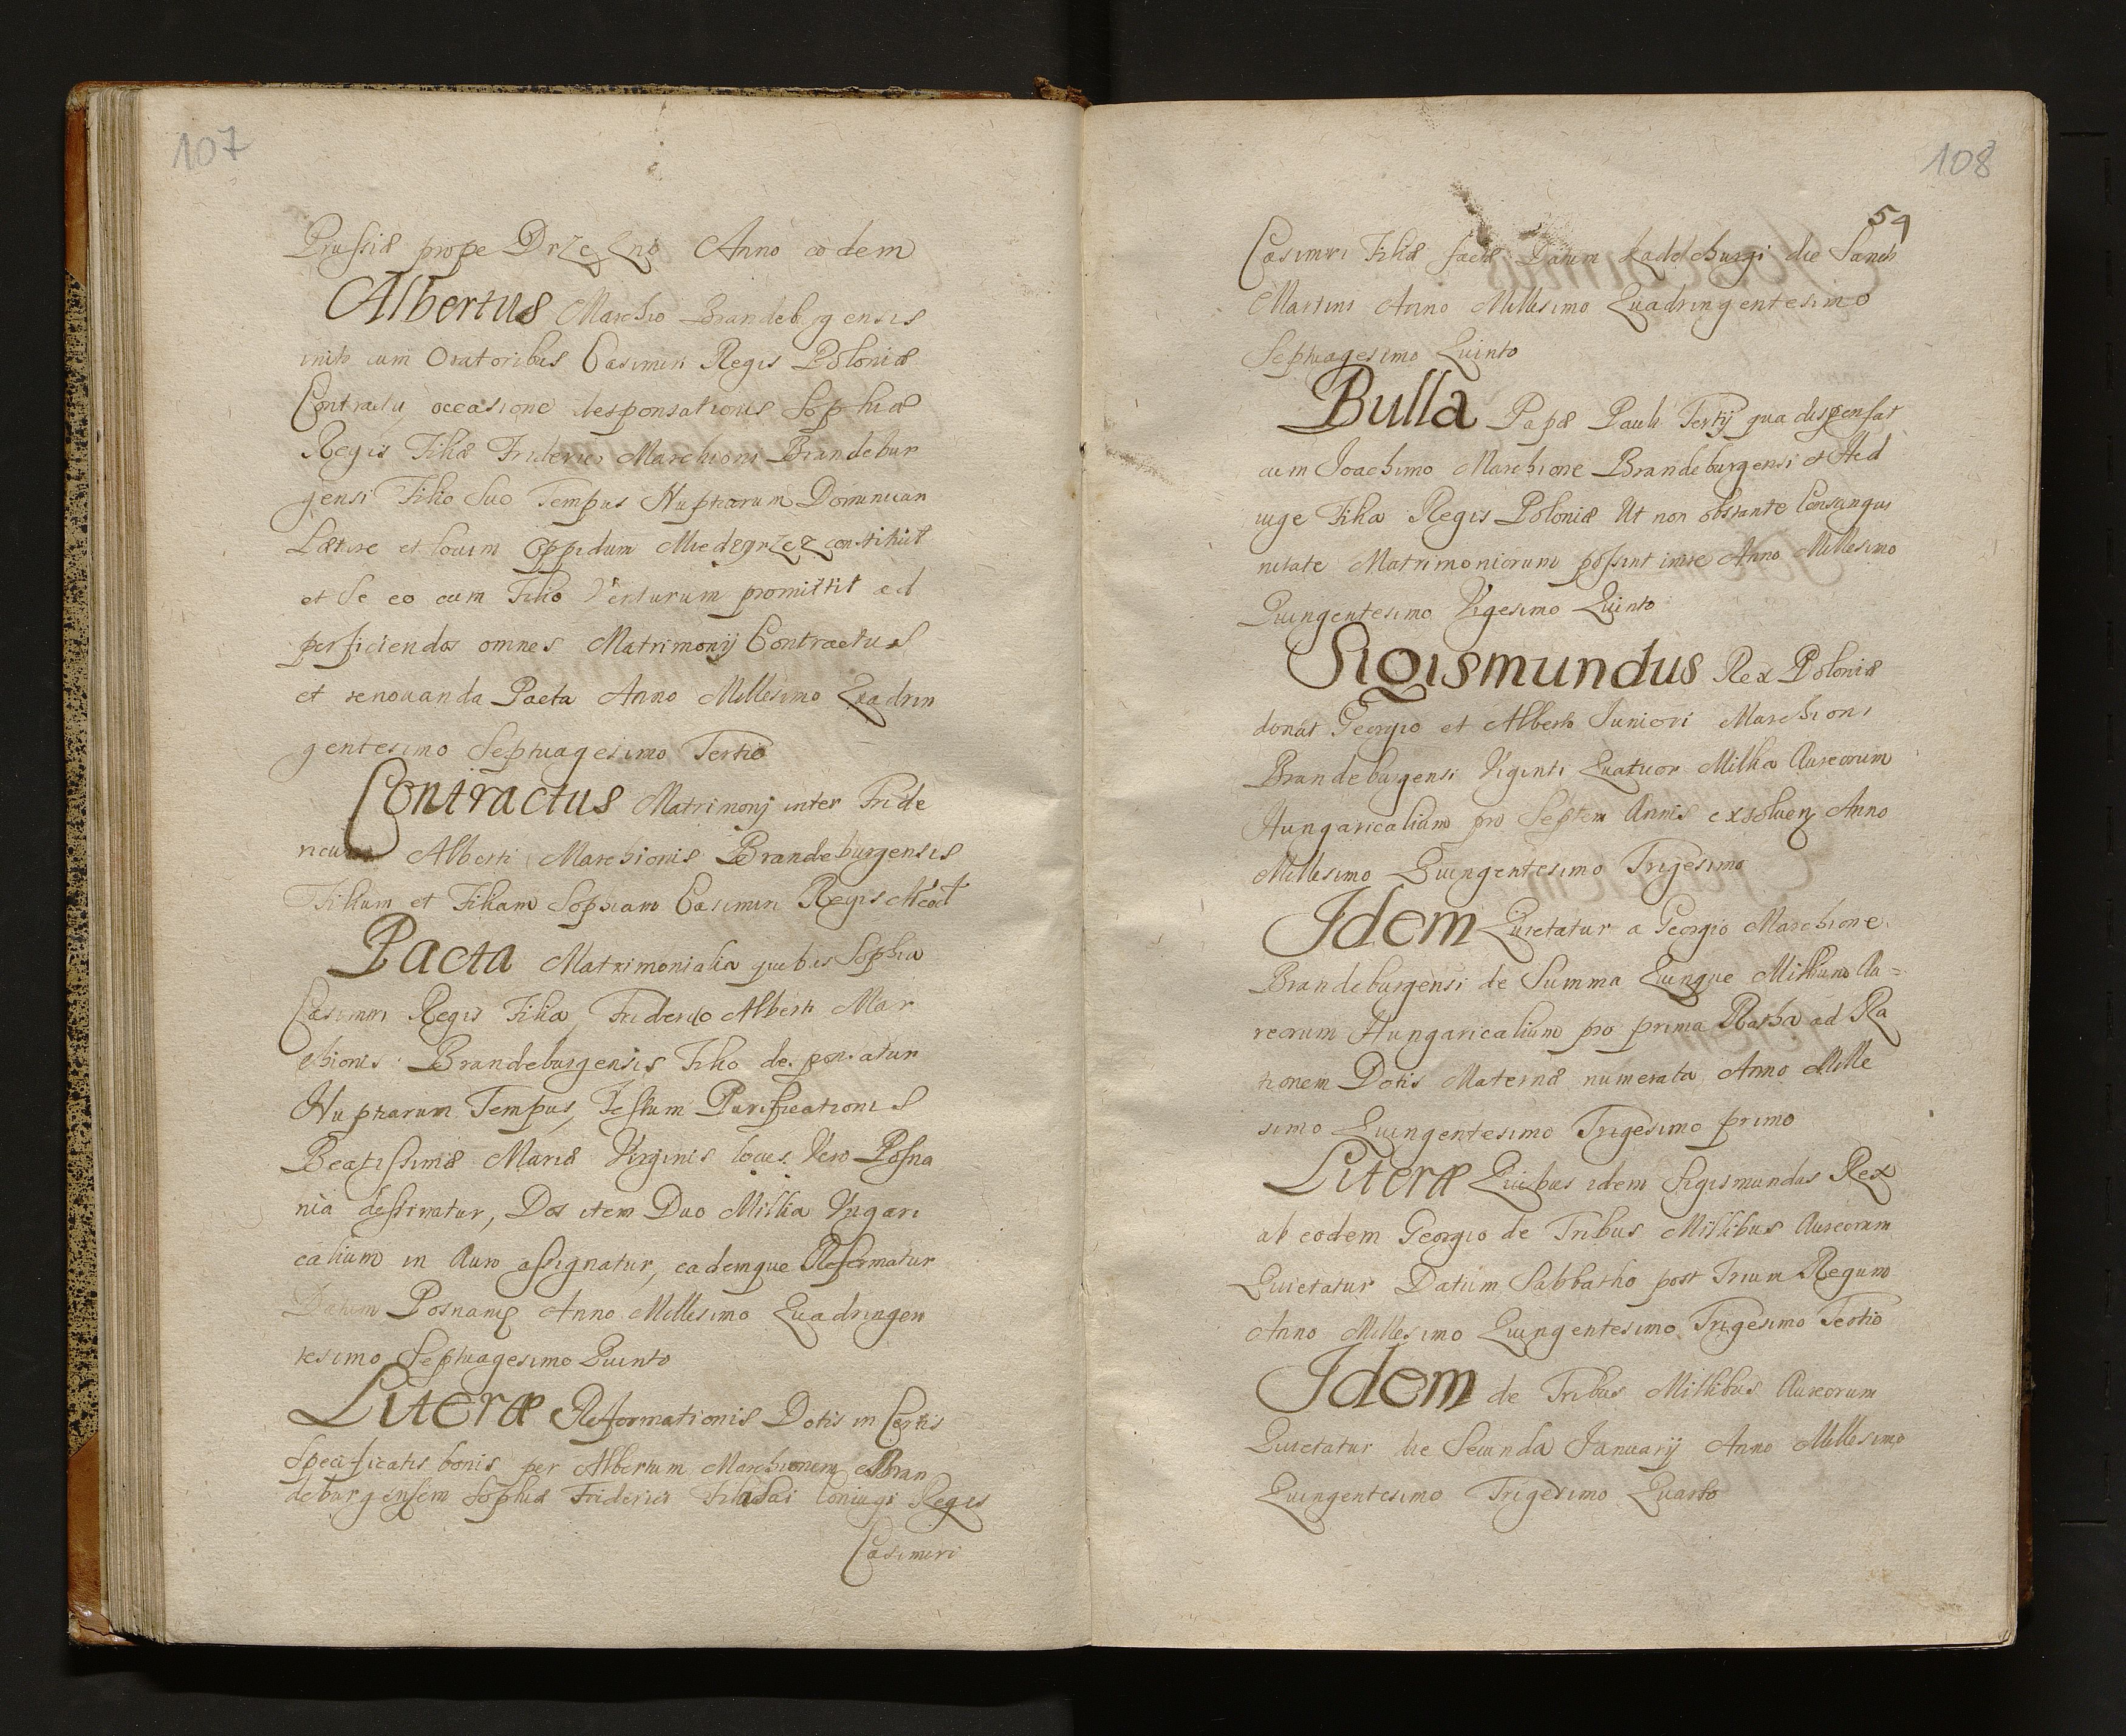 107
Prussiæ prope Drzezno Anno eodem
Albertus Marchio Brandeb͡rgensis
inito cum Oratoribus Casimiri Regis Poloniæ
Contractu, occasione desponsationis Sophiæ
Regis Filiæ Friderico Marchioni Brandebur
gensi Filio Suo Tempus Nuptiarum Dominicam
Lætare et locum Oppidum Miedzyrzez constituit
et Se eo cum Filio Venturum promittit ad
perficiendos omnes Matrimonij Contractus
et renouanda Pacta Anno Millesimo Quadrin
gentesimo Septuagesimo Tertio
Contractus Matrimonj inter Fride
ricum Alberti Marchionis Brandeburgensis
Filium et Filiam Sophiam Casimiri Regis
Pacta Matrimonialia quibus Sophia
Casimiri Regis Filia Friderico Alberti Mar
chionis Brandeburgensis Filio de.pon.atur
Nuptiarum Tempus, Festum Purificationis
Beatissimæ Mariæ Virginis locus Vero Posna
nia destinatur, Dos item Duo Millia Vngari
calium in Auro assignatur, eademque Reformatur
Datum Posnaniæ Anno Millesimo Quadringen
tesimo Septuagesimo Quinto
Literæ Reformationis Dotis in Certis
Specificatis bonis per Albertum Marchionem Bran
deburgensem Sophiæ Friderici Filij Sui Coniugi Regis
Casimiri
108
54
Casimiri Filiæ factæ Datum Radeburgi die Sancti
Martini Anno Millesimo Quadringentesimo
Septuagesimo Quinto
Bulla Papæ Pauli Tertij qua dispensat
cum Joachimo Marchione Brandeburgensi et Hed
uige Filia Regis Poloniæ Ut non obstante Consangui
nitate Matrimoniorum possint inire Anno Millesimo
Quingentesimo Vigesimo Quinto
Sigismundus Rex Poloniæ
donat Georgio et Alberto Juniori Marchioni
Brandeburgensi Viginti Quatuor Millia Aureorum
Hungaricalium pro Septem Annis exsoluen Anno
Millesimo Quingentesimo Trigesimo
Idem Quietatur a Georgio Marchione
Brandeburgensi de Summa Quinque Millium Au=
reorum Hungaricalium pro prima Ratha ad Ra
tionem Dotis Maternæ numerata Anno Mille
simo Quingentesimo Trigesimo primo
Literæ Quibus idem Sigismundus Rex
ab eodem Georgio de Tribus Millibus Aureorum
Quietatur Datum Sabbatho post Trium Regum
Anno Millesimo Quingentesimo Trigesimo Tertio
Idem de Tribus Millibus Aureorum
Quietatur die Secunda Januarij Anno Millesimo
Quingentesimo Trigesimo Quarto